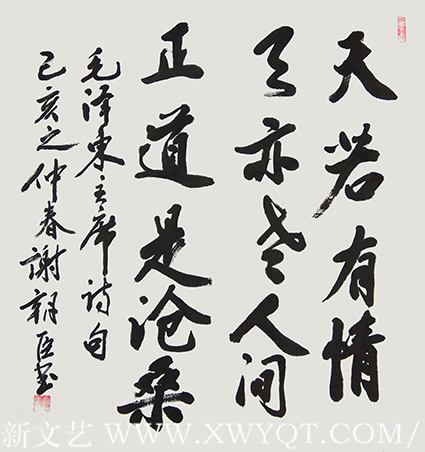 天若有情
天亦老人间
正道是沧桑
毛泽東主席诗句
己亥之仲春謝朝臣书
新文艺 WWW.XWYQT.COM/